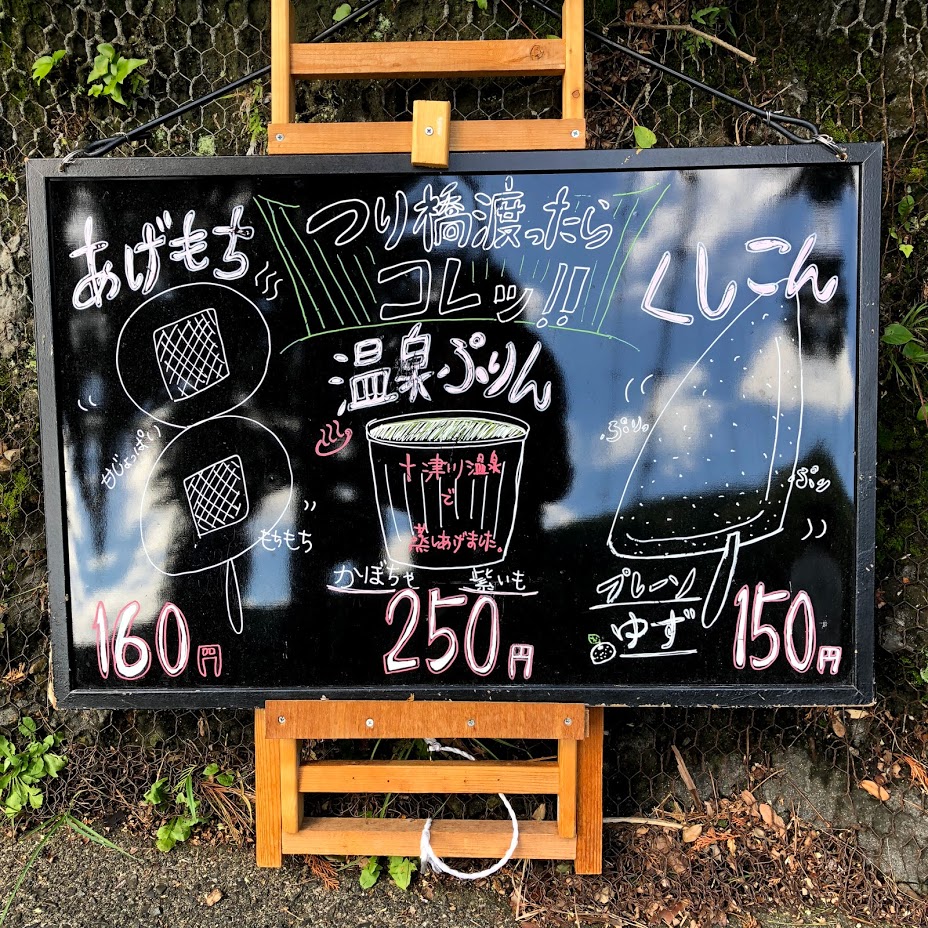 つり橋渡ったら
コレッ!!
あげもち
あまじょっぱい
もちもち
160円
温泉ぷりん
十津川温泉
で
蒸しあげました。
かぼちゃ
紫いも
250円
くしこん
ぷりっ
ぷりっ
プレーン
ゆず
150円